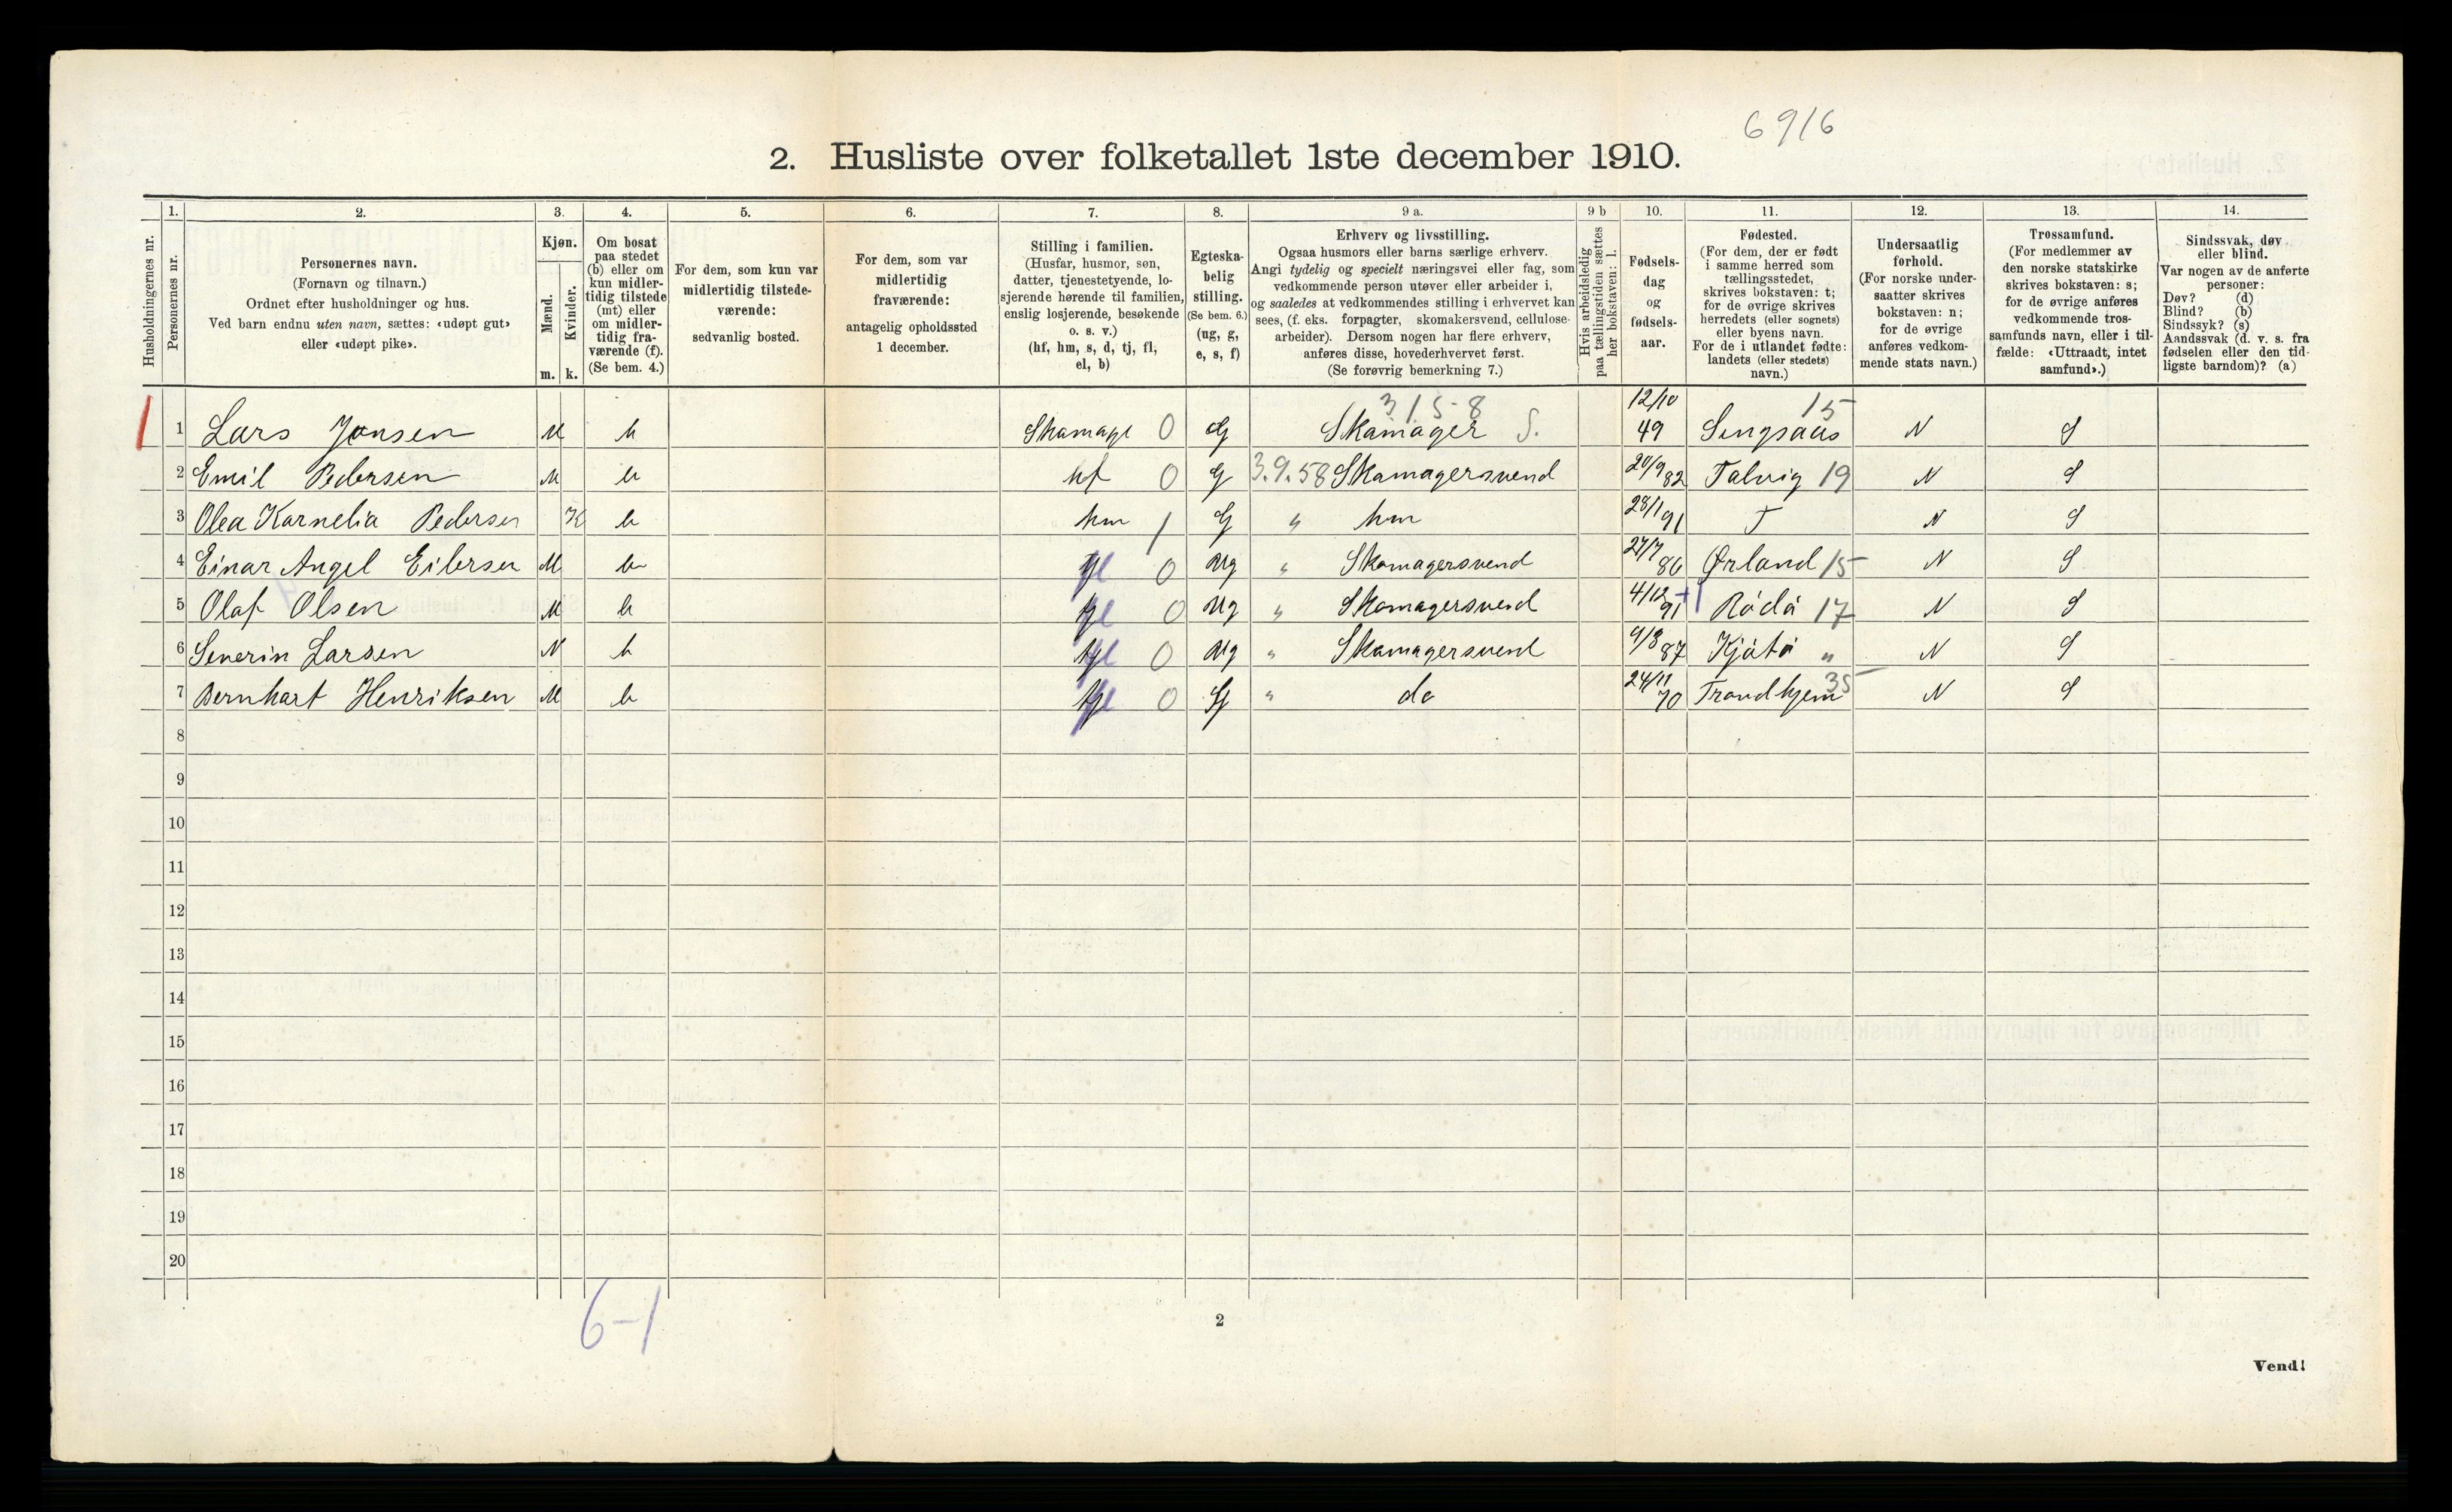 6916
2. Husliste over folketallet 1ste december 1910.
1. 2. 3. 4. 5. 6. 7. 8. 9 a. 9 b 10. 11. 12. 13. 14.
Husholdningernes nr.
Personernes nr.
Personernes navn.
(Fornavn og tilnavn.)
Ordnet efter husholdninger og hus.
Ved barn endnu uten navn, sættes: «udøpt gut»
eller «udøpt pike».
Kjøn.
Mænd.
Kvinder.
m. k.
Om bosat
paa stedet
(b) eller om
kun midler-
tidig tilstede
(mt) eller
om midler-
tidig fra-
værende (f).
(Se bem. 4.)
For dem, som kun var
midlertidig tilstede-
værende:
sedvanlig bosted.
For dem, som var
midlertidig
fraværende:
antagelig opholdssted
1 december.
Stilling i familien.
(Husfar, husmor, søn,
datter, tjenestetyende, lo-
sjerende hørende til familien,
enslig losjerende, besøkende
o. s. v.)
(hf, hm, s, d, tj, fl,
el, b)
Egteska-
belig
stilling.
(Se bem. 6.)
(ug, g,
e, s, f)
Erhverv og livsstilling.
Ogsaa husmors eller barns særlige erhverv.
Angi tydelig og specielt næringsvei eller fag, som
vedkommende person utøver eller arbeider i,
og saaledes at vedkommendes stilling i erhvervet kan
sees, (f. eks. forpagter, skomakersvend, cellulose-
arbeider). Dersom nogen har flere erhverv,
anføres disse, hovederhvervet først.
(Se forøvrig bemerkning 7.)
Hvis arbeidsledig
paa tællingstiden sættes
her bokstaven: l.
Fødsels-
dag
og
fødsels-
aar.
Fødested.
(For dem, der er født
i samme herred som
tællingsstedet,
skrives bokstaven: t;
for de øvrige skrives
herredets (eller sognets)
eller byens navn.
For de i utlandet fødte:
landets (eller stedets)
navn.)
Undersaatlig
forhold.
(For norske under-
saatter skrives
bokstaven: n;
for de øvrige
anføres vedkom-
mende stats navn.)
Trossamfund.
(For medlemmer av
den norske statskirke
skrives bokstaven: s;
for de øvrige anføres
vedkommende tros-
samfunds navn, eller i til-
fælde: «Uttraadt, intet
samfund».)
Sindssvak, døv
eller blind.
Var nogen av de anførte
personer:
Døv? (d)
Blind? (b)
Sindssyk? (s)
Aandssvak (d. v. s. fra
fødselen eller den tid-
ligste barndom)? (a)
1 Lars Jonsen M b Skamage 0 G 315-8 Skamager S. 12/10 49 Singsaas 15 N S
2 Emil Pedersen M b hf 0 G 3.9.58 Skamagersvend 20/9 82 Talvig 19 N S
3 Olea Karnelia Pedersen K b hm 1 G " hm 28/1 91 T N S
4 Einar Angel Eilersen M b 0 Ug " Skamagersvend 27/7 86 Ørland 15 N S
5 Olaf Olsen M b 0 Ug " Skamagersvend 4/12 91 Rödö 17 N S
6 Severin Larsen M b 0 Ug " Skamagersvend 9/8 87 " N S
7 Bernhart Henriksen M b 0 " do 24/11 70 Trondhjem 35 N S
8
9
10
11
12
13
14
15
16
17
18
19
20
6-1
2
Vend!